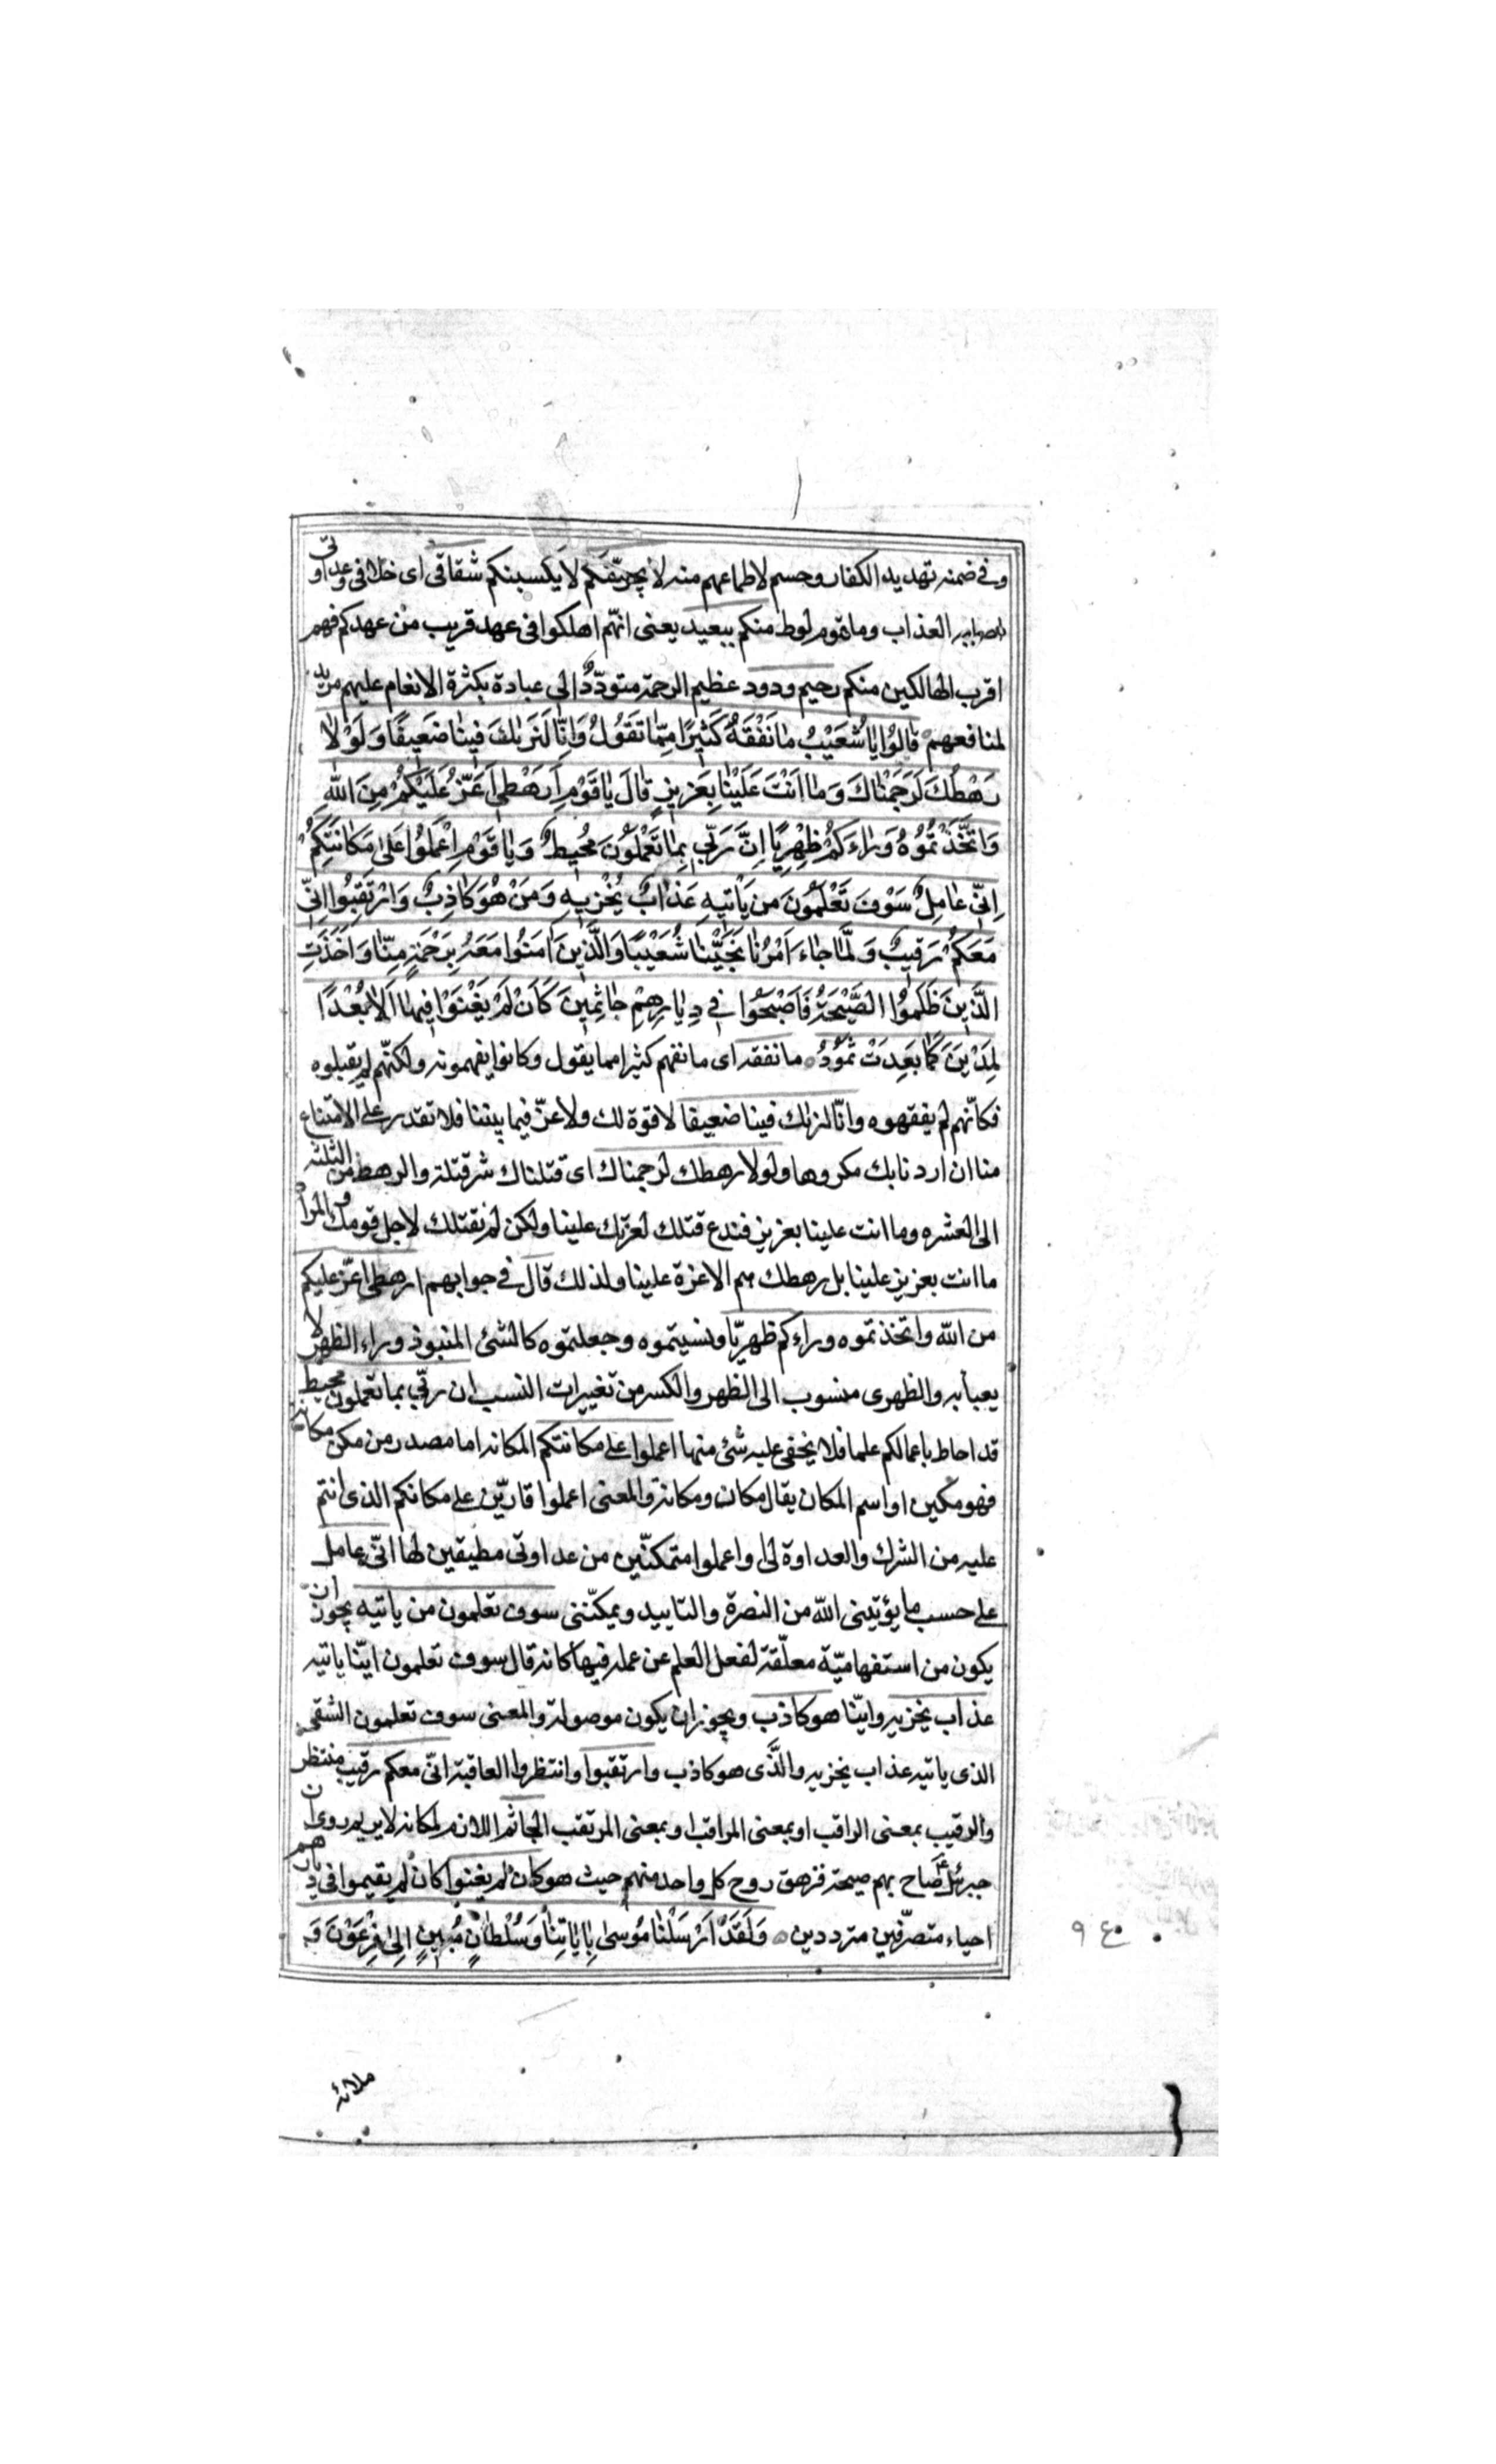 وفى ضمنه تهديد الكفار وحسم لاطماعهم منه لا يجرمنّكم لا يكسبنكم شقاقى اى خلافى وعداوتى
العذاب وما قوم لوط منكم ببعيد يعنى انهّم اهلكوا فى عهد قريب من عهدكم فهم
اقرب الهالكين منكم رحيم ودود عظيم الرحمة متودّدٌ الى عبادة بكثرة الانعام عليهم
لمنافعهم قالُوْا يٰا شُعَيْبُ مٰا نَفْقَهُ كَثِيْرًا مِمّٰا تَقُوْلُ وَاِنّٰا لَنَرٰىكَ فِينٰا ضَعِيفًا وَلَوْلاٰ
رَهْطُكَ لَرَجَمْنٰاكَ وَمٰا اَنْتَ عَلَيْنٰا بِعَزِيزٍ قٰالَ يٰا قَوْمِ اَرَهْطِى اَعَزُّ عَلَيْكُمْ مِنَ اللّٰهِ
وَاتَّخَذْتُمُوْهُ وَرٰاءَكُمْ ظِهْرِيًّا اِنَّ رَبّى بِمٰا تَعْمَلُوْنَ مُحِيطٌ وَيٰا قَوْمِ اِعْمَلُوْا عَلىٰ مَكٰانَتِكُمْ
اِنّى عٰامِلٌ سَوْفَ تَعْلَمُوْنَ مَنْ يَأْتِيهِ عَذٰابٌ يُخْزِيهِ وَمَنْ هُوَ كٰاذِبٌ وَارْتَقِبُوْا اِنّى
مَعَكُمْ رَقِيبٌ وَلَمّٰا جٰاءَ اَمْرُنٰا نَجَّيْنٰا شُعَيْبًا وَالَّذِينَ اٰمَنُوا مَعَهُ بِرَحْمَةٍ مِنّٰا وَاَخَذَتِ
الَّذِينَ ظَلَمُوا الصَّيْحَةُ فَاَصْبَحُوْا فى دِيٰارِهِمْ جٰاثِمِينَ كَاَنْ لَمْ يَغْنَوْا فِيهٰا اَلاٰ بُعْدًا
لِمَدْيَنَ كَمٰا بَعِدَتْ ثَمُوْدُ ما نفقه اى ما نفهم كثيرا مما يقول وكانوا يفهمونه ولكنّهم لم يقبلوه
فكانّهم لم يفقهوه وانّا لنريك فينا ضعيفا لا قوة لك ولا عزّ فيما بيننا فلا تقدر على الامتناع
منا ان اردنا بك مكروها ولولا رهطك لرجمناك اى قتلناك شر قتلة والرهط من الثلثه
الى العشره وما انت علينا بعزيز فندع قتلك لعزّتك علينا ولكن لم نقتلك لاجل قومك والمراد
ما انت بعزيز علينا بل رهطك هم الاعزة علينا ولذلك قال فى جوابهم ارهطى اعزّ عليكم
من الله واتخذتموه وراءكم ظهريّا ونسيتموه وجعلتموه كالشئ المنبوذ وراء الظهر لا
يعبأ به والظهرى منسوب الى الظهر والكسر من تغييرات النسب ان ربّى بما تعملون محيط
قد احاط باعمالكم علما فلا يخفى عليه شئ منها اعملوا على مكانتكم المكانه اما مصدر من مكن مكانة
فهو مكين او اسم المكان يقال مكان ومكانة والمعنى اعملوا قارّين على مكانكم الذى انتم
عليه من الشرك والعداوة لى او اعملوا متمكنّين من عداوتى مطيقين لها انّى عامل
على حسب ما يؤتينى الله من النصرة والتاييد ويمكنّنى سوف تعلمون من ياتيه يجوز ان
يكون من استفهاميّة معلّقة لفعل العلم عن عمله فيها كانه قال سوف تعلمون ايّنا ياتيه
عذاب يخزيه وايّنا هو كاذب ويجوز ان يكون موصولة والمعنى سوف تعلمون الشقى
الذى ياتيه عذاب يخزيه والذّى هو كاذب وارتقبوا وانتظروا العاقبة انّى معكم رقيب منتظر
والرقيب بمعنى الراقب او بمعنى المراقب او بمعنى المرتقب الجاثم اللازم لمكانه لا يريم روى ان
جبرئيل صاح بهم صيحة فزهق روح كل واحد منهم حيث هو كان لم يغنوا كان لم يقيموا فى ديارهم
احياء متصرّفين مترددين وَلَقَدْ اَرْسَلْنٰا مُوْسىٰ بِاٰيٰاتِنٰا وَسُلْطٰانٍ مُبِينٍ اِلىٰ فِرْعَوْنَ وَ
ملائه